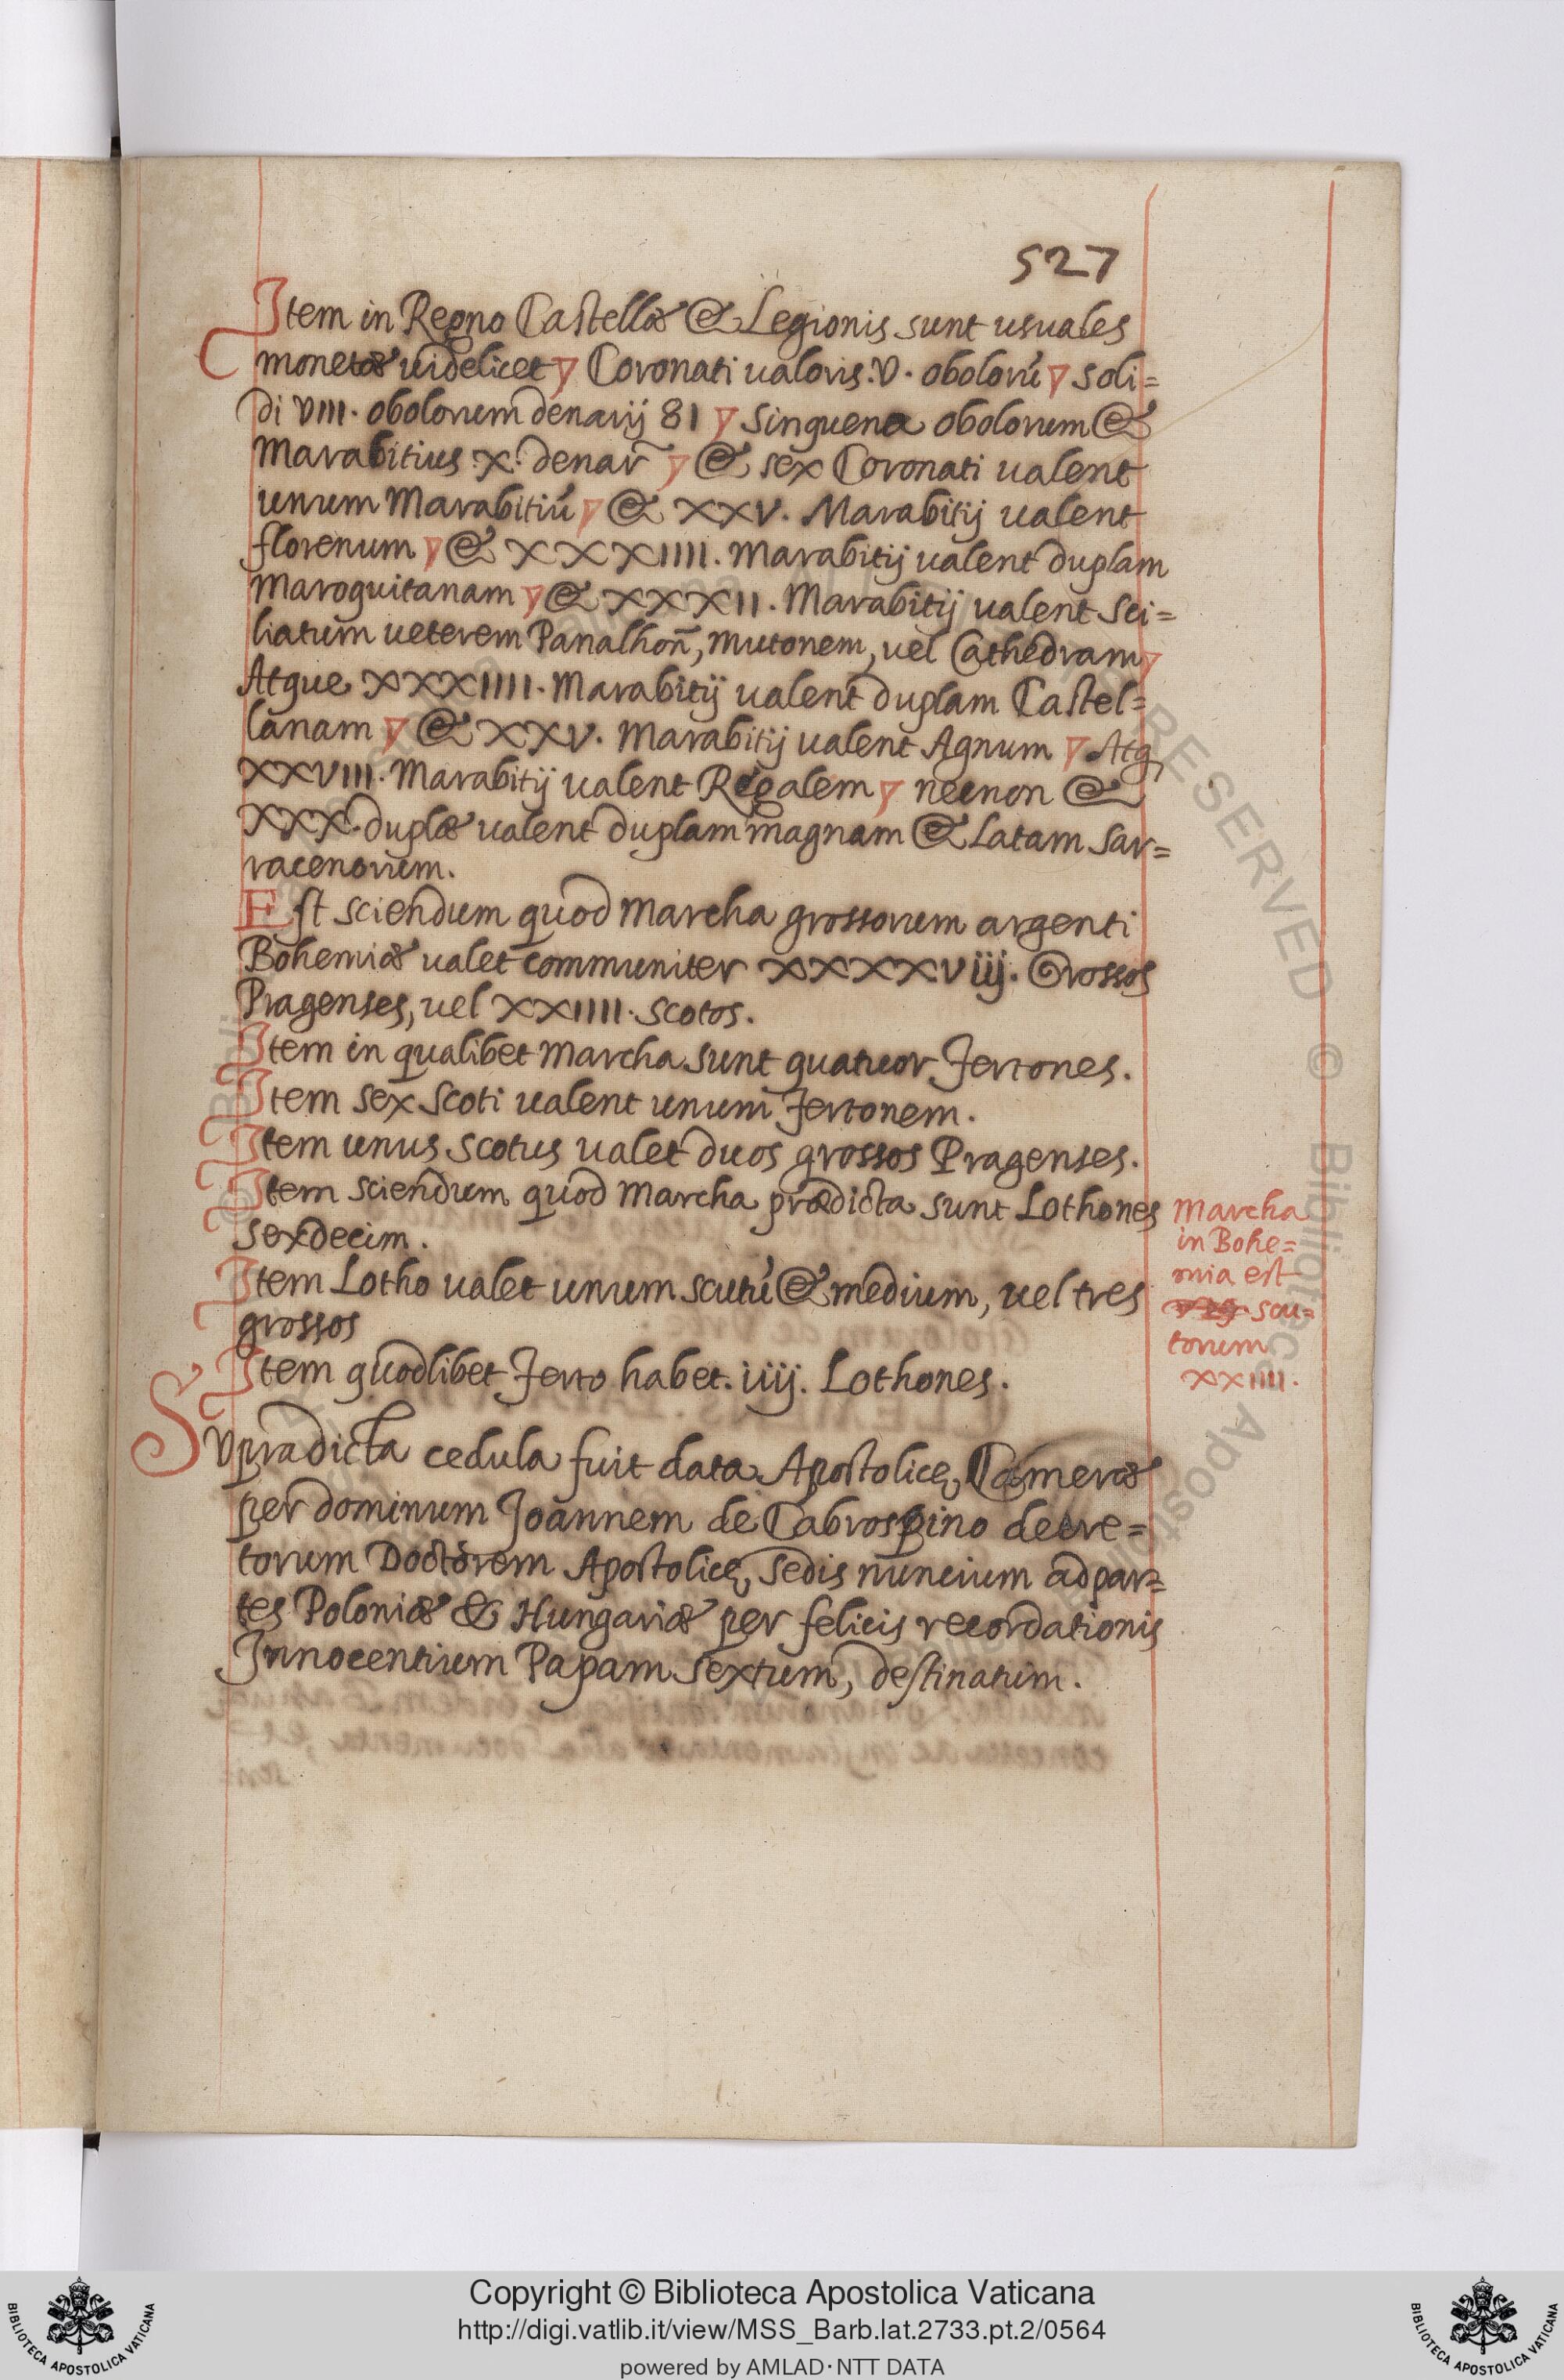 527
Item in Regno Castellæ & Legionis sunt usuales
monetæ videlicet Coronati valoris .V. obolorú soli=
di VIII. obolorum denarij 81 Singuena obolorum &
Marabitius .X. denar̃ & sex Coronati valent
unum Marabitiú & XXV. Marabitij valent
florenum & XXXIIII. Marabitij valent duplam
Maroquitanam & XXXII. Marabitij valent Sci=
liatum veterem Panalhoñ, mutonem, vel Cathedram
Atque XXXIIII. Marabitij valent duplam Castel=
lanam & XXV. Marabitij valent Agnum Atq
XXVIII. Marabitij valent Regalem necnon &
XXX. duplæ valent duplam magnam & Latam Sar=
racenorum.
Est sciendum quod Marcha grossorum argenti
Bohemiæ valet communiter XXXXViij. Grossos
Pragenses, vel XXIIII. Scotos.
Item in qualibet Marcha sunt quatuor Fertones.
Item sex Scoti valent unum Fertonem.
Item unus Scotus valet duos grossos Pragenses.
Item sciendum quod Marcha prædicta sunt Lothones
sexdecim.
Item Lotho valet unum scutú & medium, vel tres
grossos
Item quodlibet Ferto habet. iiij. Lothones.
Marcha
in Bohe=
mia est
scu=
torum
XXIIII.
Supradicta cedula fuit data Apostolicę Cameræ
per dominum Joannem de Cabrospino decre=
torum Doctorem Apostolicę Sedis nuncium ad par=
tes Poloniæ & Hungariæ per felicis recordationis
Innocentium Papam Sextum, destinatum.
Copyright © Biblioteca Apostolica Vaticana
http://digi.vatlib.it/view/MSS_Barb.lat.2733.pt.2/0564
powered by AMLAD·NTT DATA
BIBLIOTECA APOSTOLICA VATICANA
BIBLIOTECA APOSTOLICA VATICANA